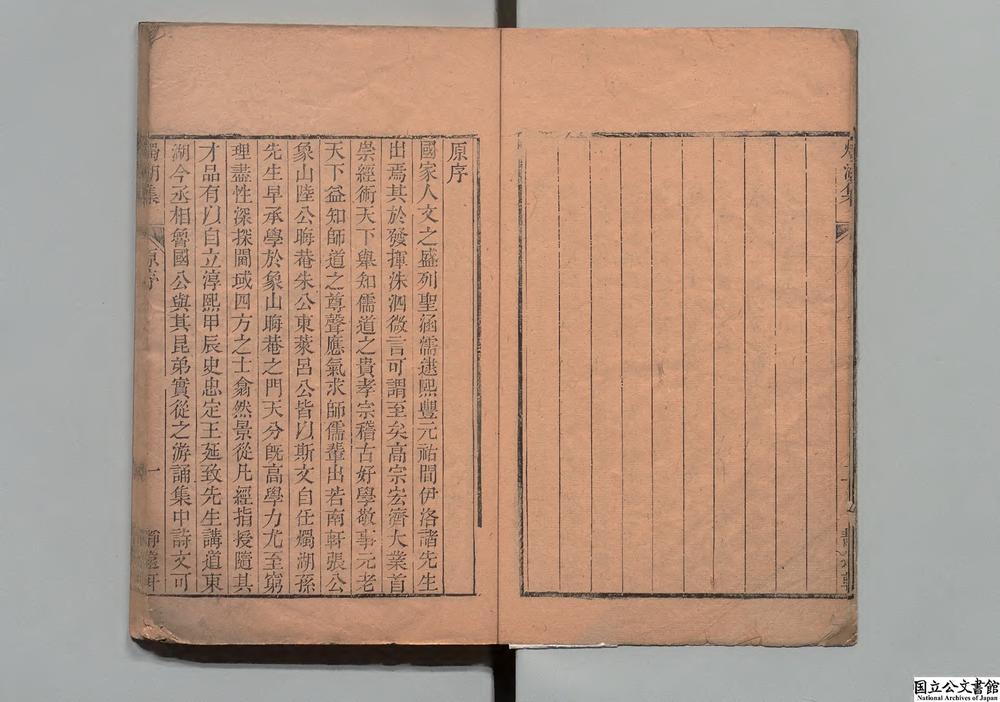 原序
國家人文之盛列聖涵濡逮熙豐元祐間伊洛諸先生
出焉其於發揮洙泗微言可謂至矣高宗宏濟大業首
崇經術天下舉知儒道之貴孝宗稽古好學敬事元老
天下益知師道之尊聲應氣求師儒輩出若南軒張公
象山陸公晦菴朱公東萊呂公皆以斯文自任燭湖孫
先生早承學於象山晦菴之門天分旣高學力尤至窮
理盡性深探閫域四方之士翕然景從凡經指授隨其
才品有以自立淳熙甲辰史忠定王延致先生講道東
湖今丞相魯國公與其昆弟實從之游誦集中詩文可
燭湖集
原序
一
靜遠軒
国立公文書館
National Archives of Japan